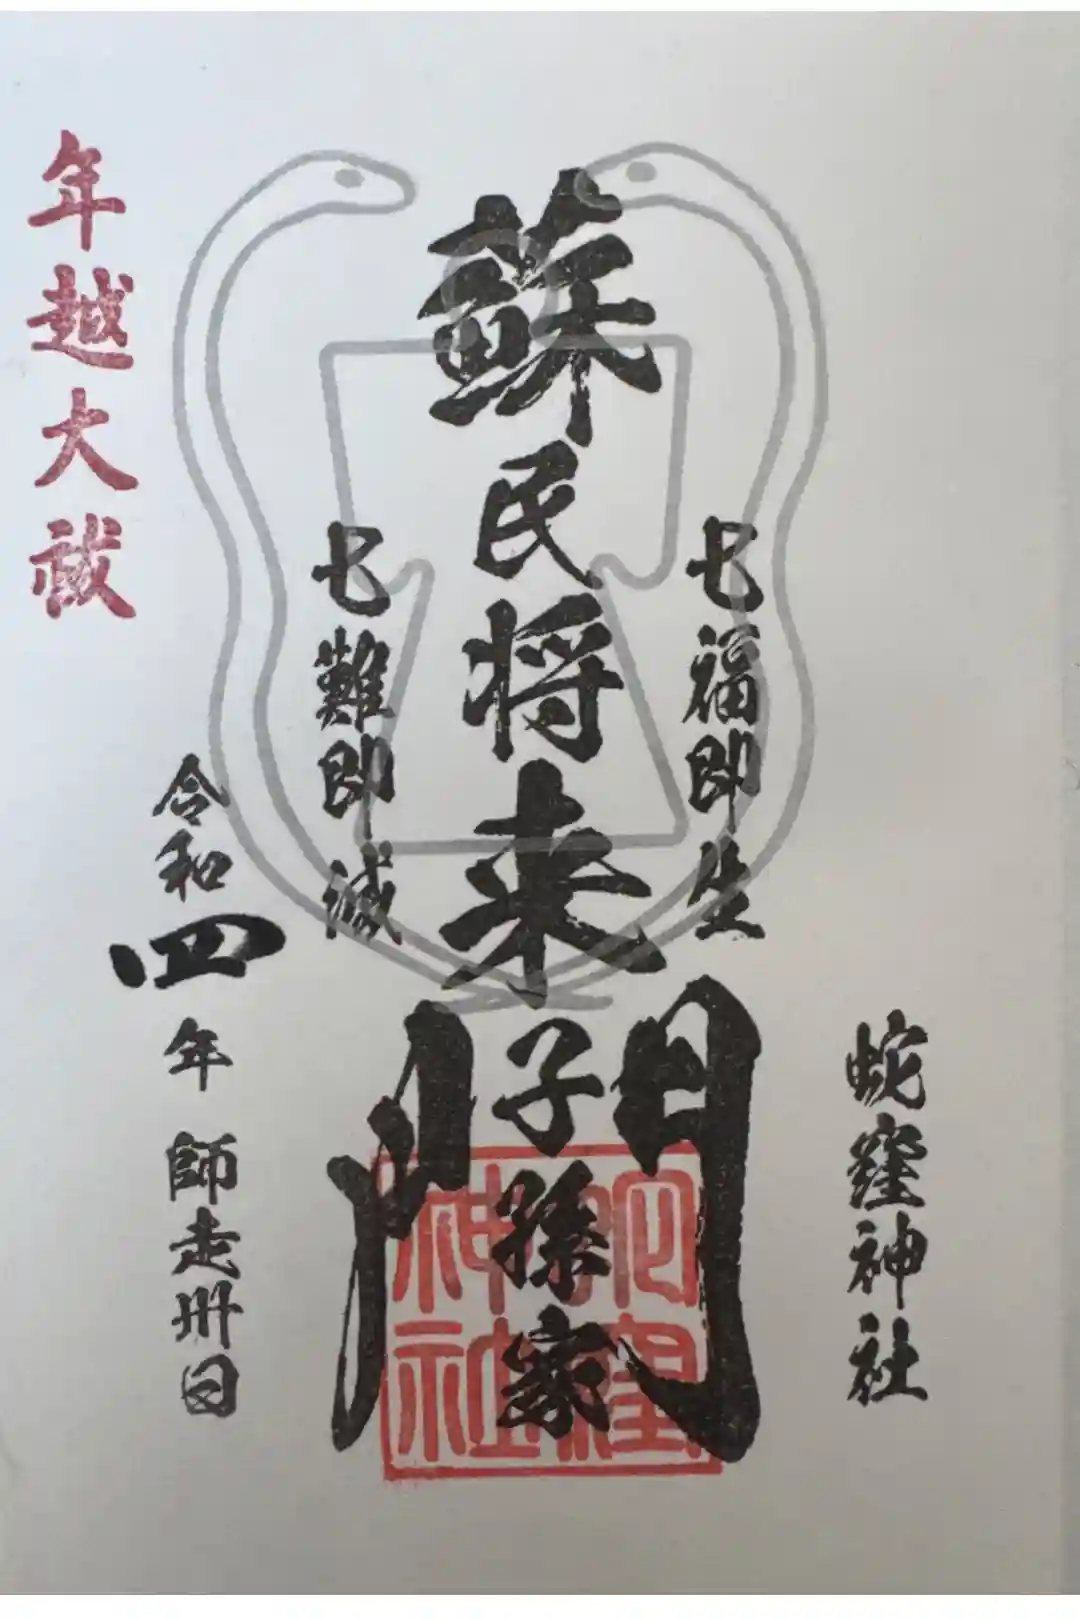 蛇窪神社
七福即生
蘇民将来子孫家門
七難即滅
令和四年師走卅日
年越大祓
蛇窪
神社